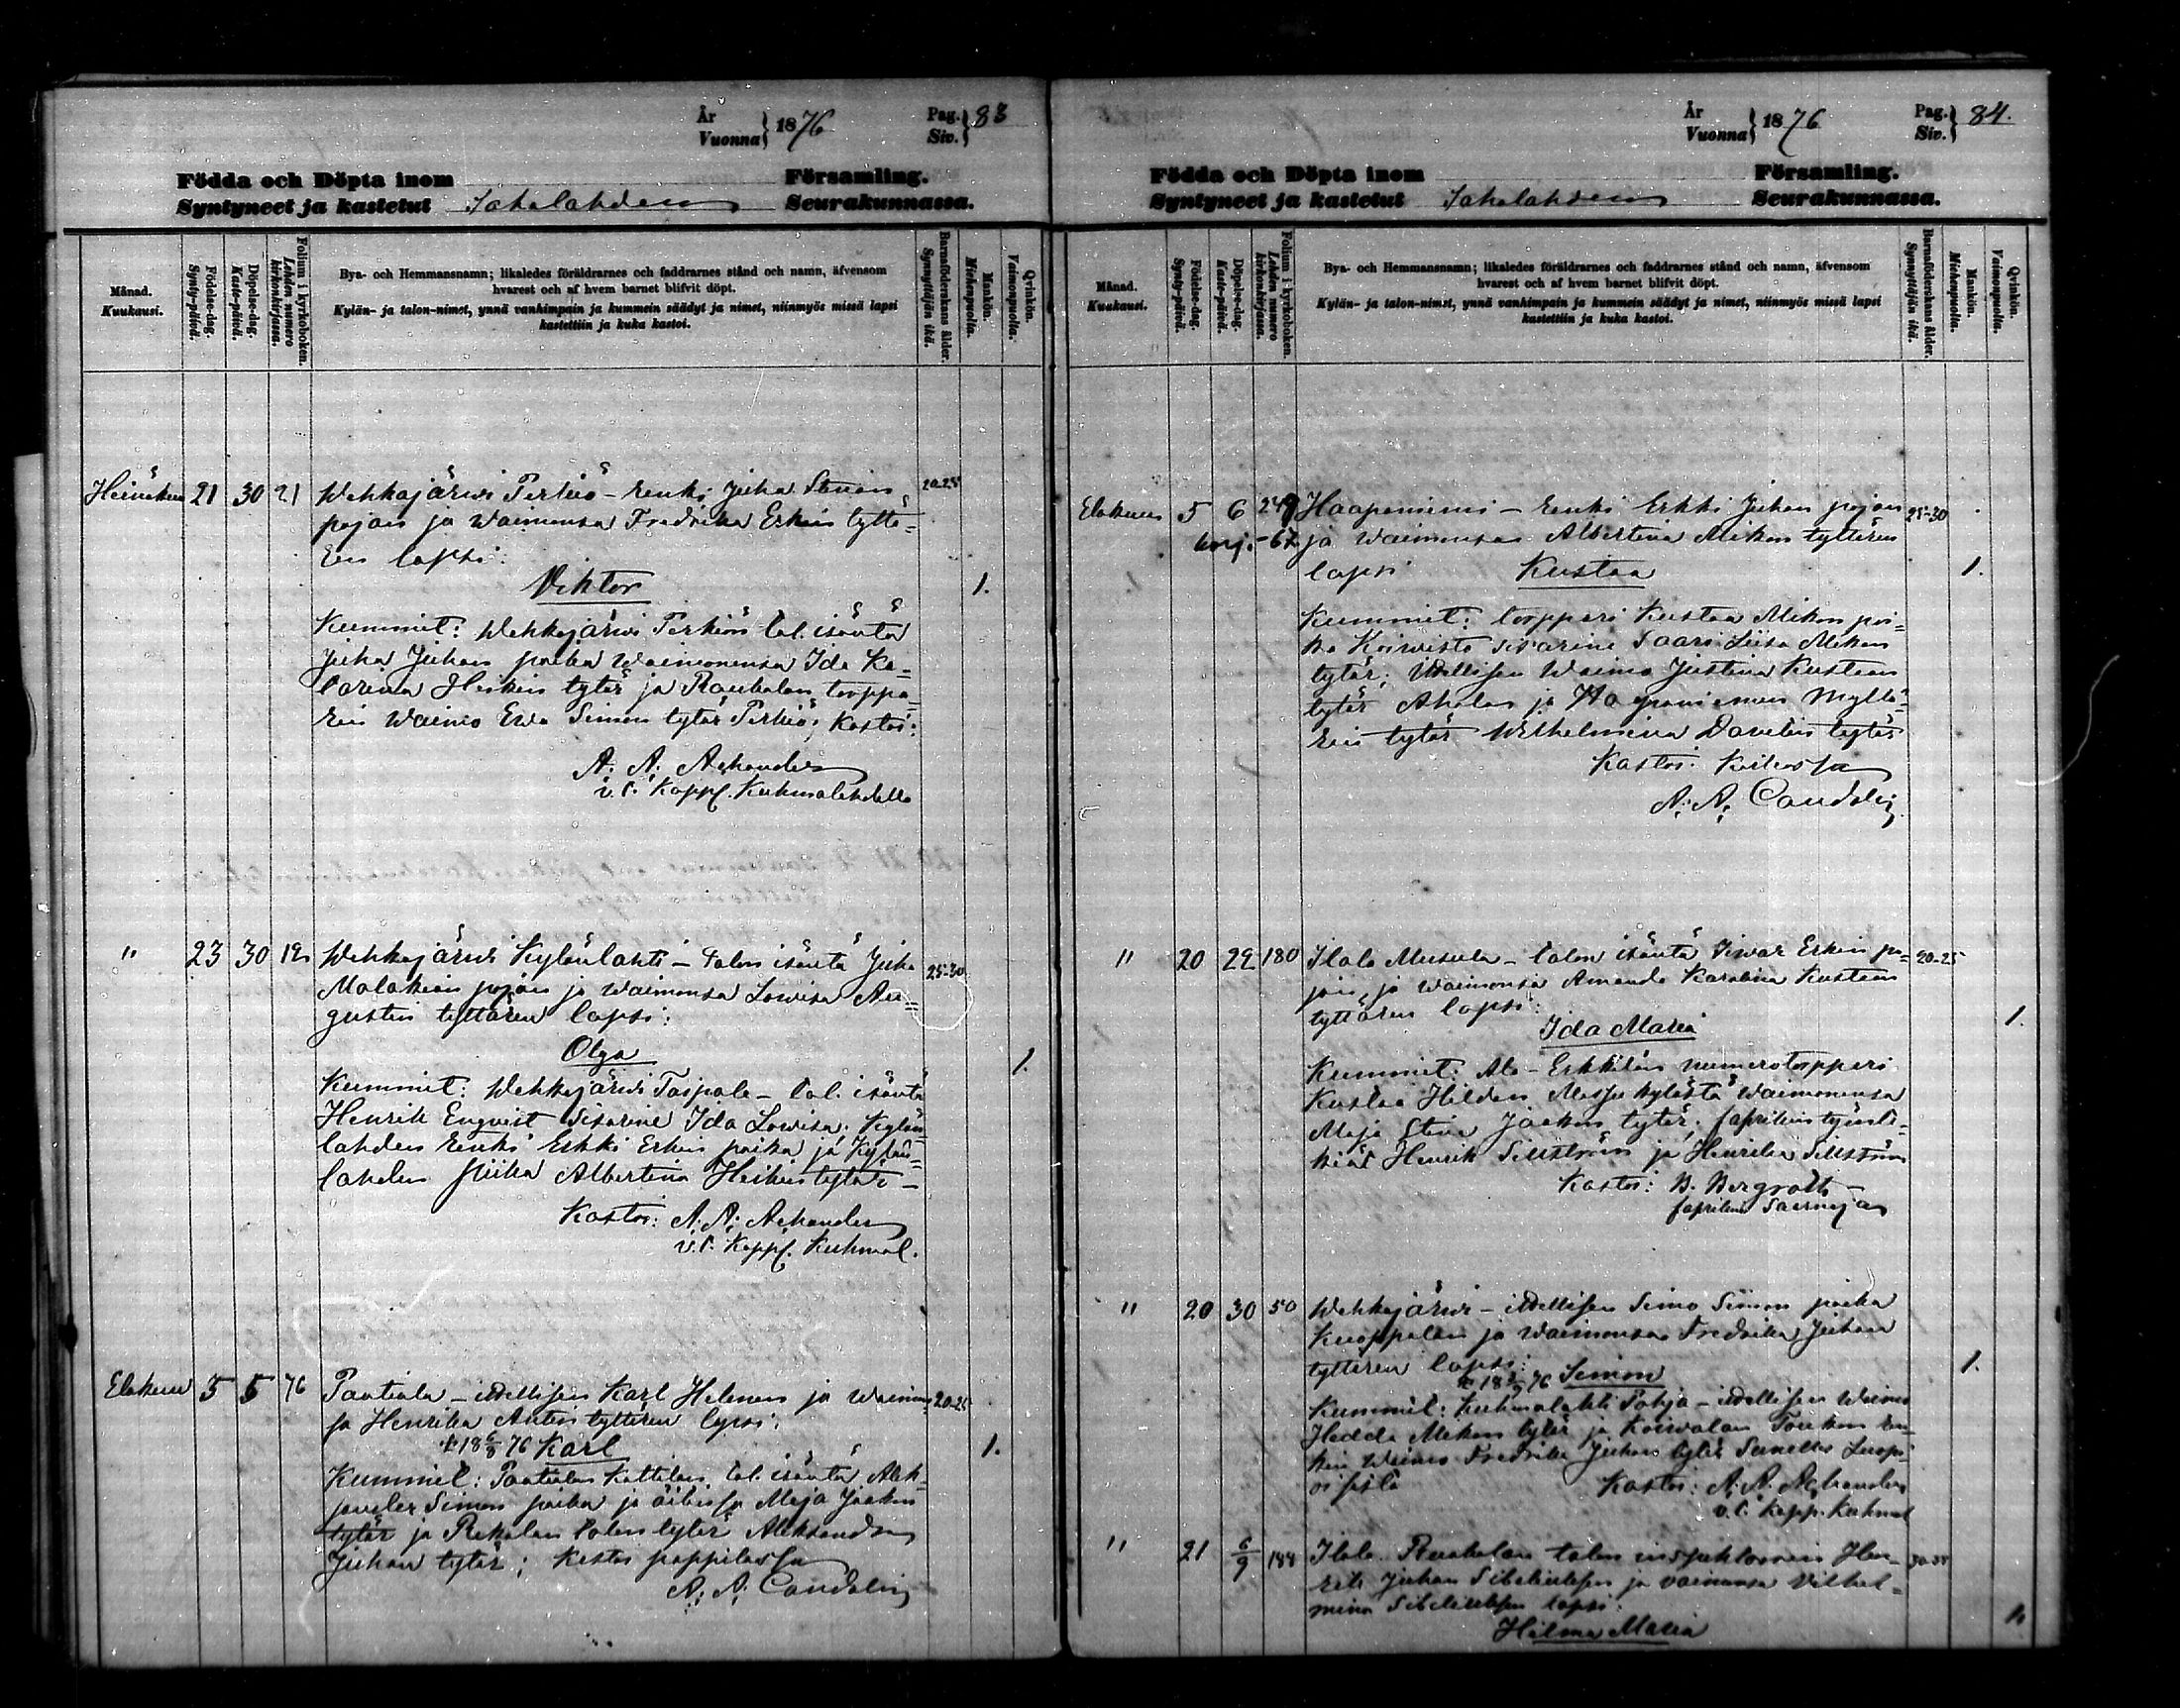 År
Vuonna } 1876
Pag.
Siv. } 83
Födda och Döpta inom Församling.
Syntyneet ja kastetut Sahalahden Seurakunnassa.
Månad.
Kuukausi.
Födelse-dag.
Synty-päivä.
Döpelse-dag.
Kaste-päivä.
Folium i kyrkoboken.
Lehden numero kirkonkirjassa.
Bya- och Hemmansnamn; likaledes föräldrarnes och faddrarnes stånd och namn, äfvensom
hvarest och af hvem barnet blifvit döpt.
Kylän- ja talon-nimet, ynnä vanhimpain ja kummein säädyt ja nimet, niinmyös missä lapsi
kastettiin ja kuka kastoi.
Barnaföderskans ålder.
Synnyttäjän ikä.
Mankön.
Miehenpuolia.
Qvinkön.
Vaimonpuolia.
Heinäkuu 21 30 21 Wehkajärwi Perkiö - renki Juha 20-25
pojan ja waimonsa Fredrika Erkin tyttä=
ren lapsi:
Viktor 1.
Kummit: Wehkajärwi Perkiön tal. isäntä
Juha Juhan poika waimonensa Ida Ka=
tarina Heikin tytär ja Rauhalan torppa=
rin waimo Ewa Simon tytär Perkiö; Kastoi:
A. A. Achander
v. t. Kappl. Kuhmalahdella
" 23 30 12 Wehkajärwi Kylänlahti - talon isäntä Juha 25-30
Malakian pojan ja waimonsa Lowisa Au=
gustin tyttären lapsi:
Olga 1.
Kummit: Wehkajärwi Taipale - tal. isäntä
Henrik Enqvist sisarine Ida Lowisa; Kylän
lahden renki Erkki Erkin poika ja Kylän=
lahden piika Albertina Heikin tytär -
Kastoi: A. A. Achander
v. t. Kappl. Kuhmal.
Elokuu 5 5 76 Pantiala - itsellisen Karl Helenin ja waimon 20-25
sa Henrika Antin tyttären lapsi:
† 18 6/8 76 Karl 1.
Kummit: Kattilan tal. isäntä Alek=
sander Simon poika ja äitinsä Maja Jaakon
tytär ja Rekolan talon tytär Aleksandra
Juhan tytär; Kastoi pappilassa
A. A. Candolin
År
Vuonna } 1876
Pag.
Siv. } 84.
Födda och Döpta inom Församling.
Syntyneet ja kastetut Sahalahden Seurakunnassa.
Månad.
Kuukausi.
Födelse-dag.
Synty-päivä.
Döpelse-dag.
Kaste-päivä.
Folium i kyrkoboken.
Lehden numero kirkonkirjassa.
Bya- och Hemmansnamn; likaledes föräldrarnes och faddrarnes stånd och namn, äfvensom
hvarest och af hvem barnet blifvit döpt.
Kylän- ja talon-nimet, ynnä vanhimpain ja kummein säädyt ja nimet, niinmyös missä lapsi
kastettiin ja kuka kastoi.
Barnaföderskans ålder.
Synnyttäjän ikä.
Mankön.
Miehenpuolia.
Qvinkön.
Vaimonpuolia.
Elokuu 5 6 249 Haapaniemi - renki Erkki Juhan pojan 25-30
-67 ja waimonsa Albertina Mikon tyttären
lapsi Kustaa 1.
Kummit: torppari Kustaa Mikon poi=
ka Koiwisto sisarine Saara Liisa Mikon
tytär; itsellisen waimo Justina Kustaan
tytär Ahola ja Haapaniemen myllä=
rin tytär Wilhelmina Davidin tytär
Kastoi: Kirkossa
A. A. Candolin
" 20 22 180 Ilala Musula - talon isäntä Iiwar Erkin po= 20-25
jan ja waimonsa Amanda Karolina Kustaan
tyttären lapsi:
Ida Maria 1.
Kummit: Ala-Erkkilän numerotorppari
Kustaa Hilden Messukylästä waimonensa
Maja Stina Jaakon tytär; faprikin työnte=
kiät Henrik Sillström ja Henrika Sillström
Kastoi: B. Bergroth
faprikin saarnaja
" 20 30 50 Wehkajärwi - itsellisen Simo Simon poika
Kuoppalan ja waimonsa Fredrika Juhan
tyttären lapsi:
† 18 76 Simon 1.
Kummit: Kuhmalahti Pohja - itsellisen waimo
Hedda Mikon tytär ja Koiwalan Toukon ren
kin waimo Fredrika Juhan tytär Luopi
oisista Kastoi: A. A. Achander
v. t. Kapp. Kuhmal
" 21 6/9 188 Ilala Ruokolan talon inspehtorin Hen= 30-35
rik Juhan Sibeliuksen ja vaimonsa Vilhel=
mina Sibeliuksen lapsi:
Hilma Maria 1.